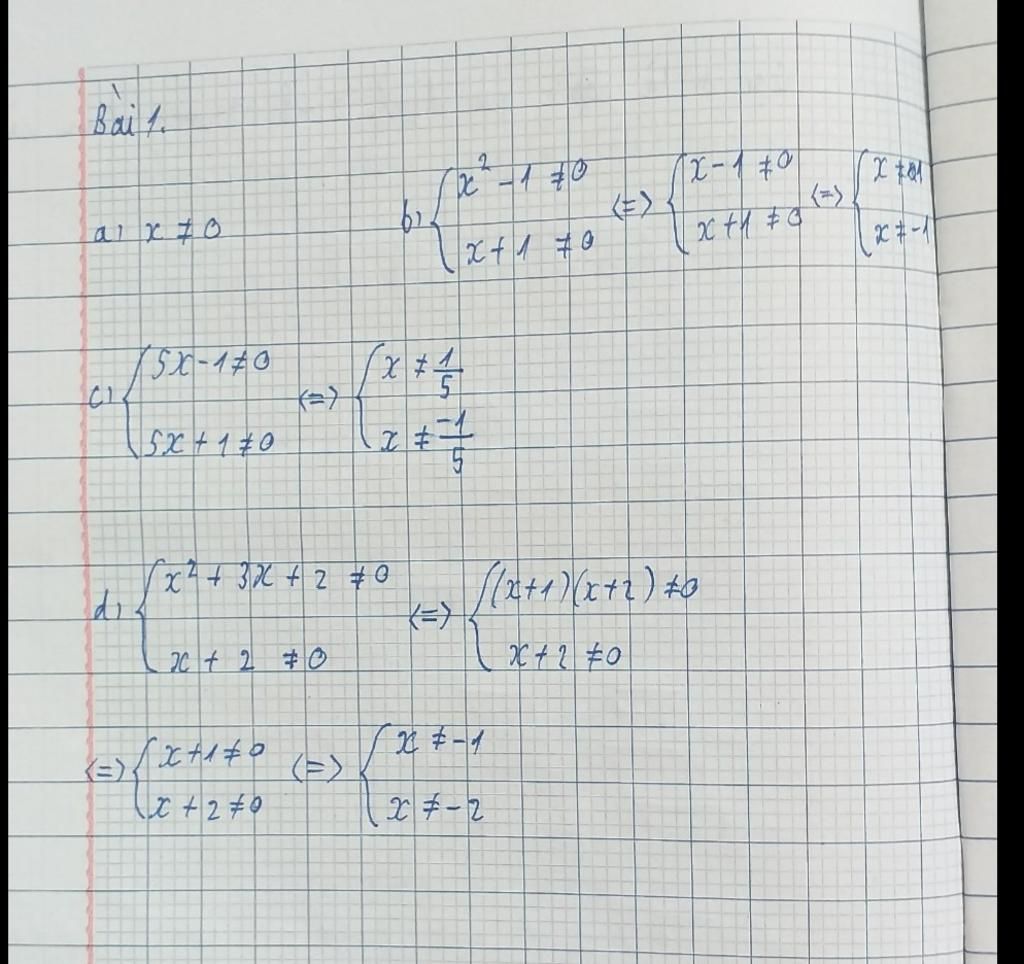 Bài 1.
a) x ≠ 0 b) { x² - 1 ≠ 0 ; x + 1 ≠ 0 <=> { x - 1 ≠ 0 ; x + 1 ≠ 0 <=> { x ≠ 1 ; x ≠ -1
c) { 5x - 1 ≠ 0 ; 5x + 1 ≠ 0 <=> { x ≠ 1/5 ; x ≠ -1/5
d) { x² + 3x + 2 ≠ 0 ; x + 2 ≠ 0 <=> { (x+1)(x+2) ≠ 0 ; x + 2 ≠ 0
<=> { x + 1 ≠ 0 ; x + 2 ≠ 0 <=> { x ≠ -1 ; x ≠ -2